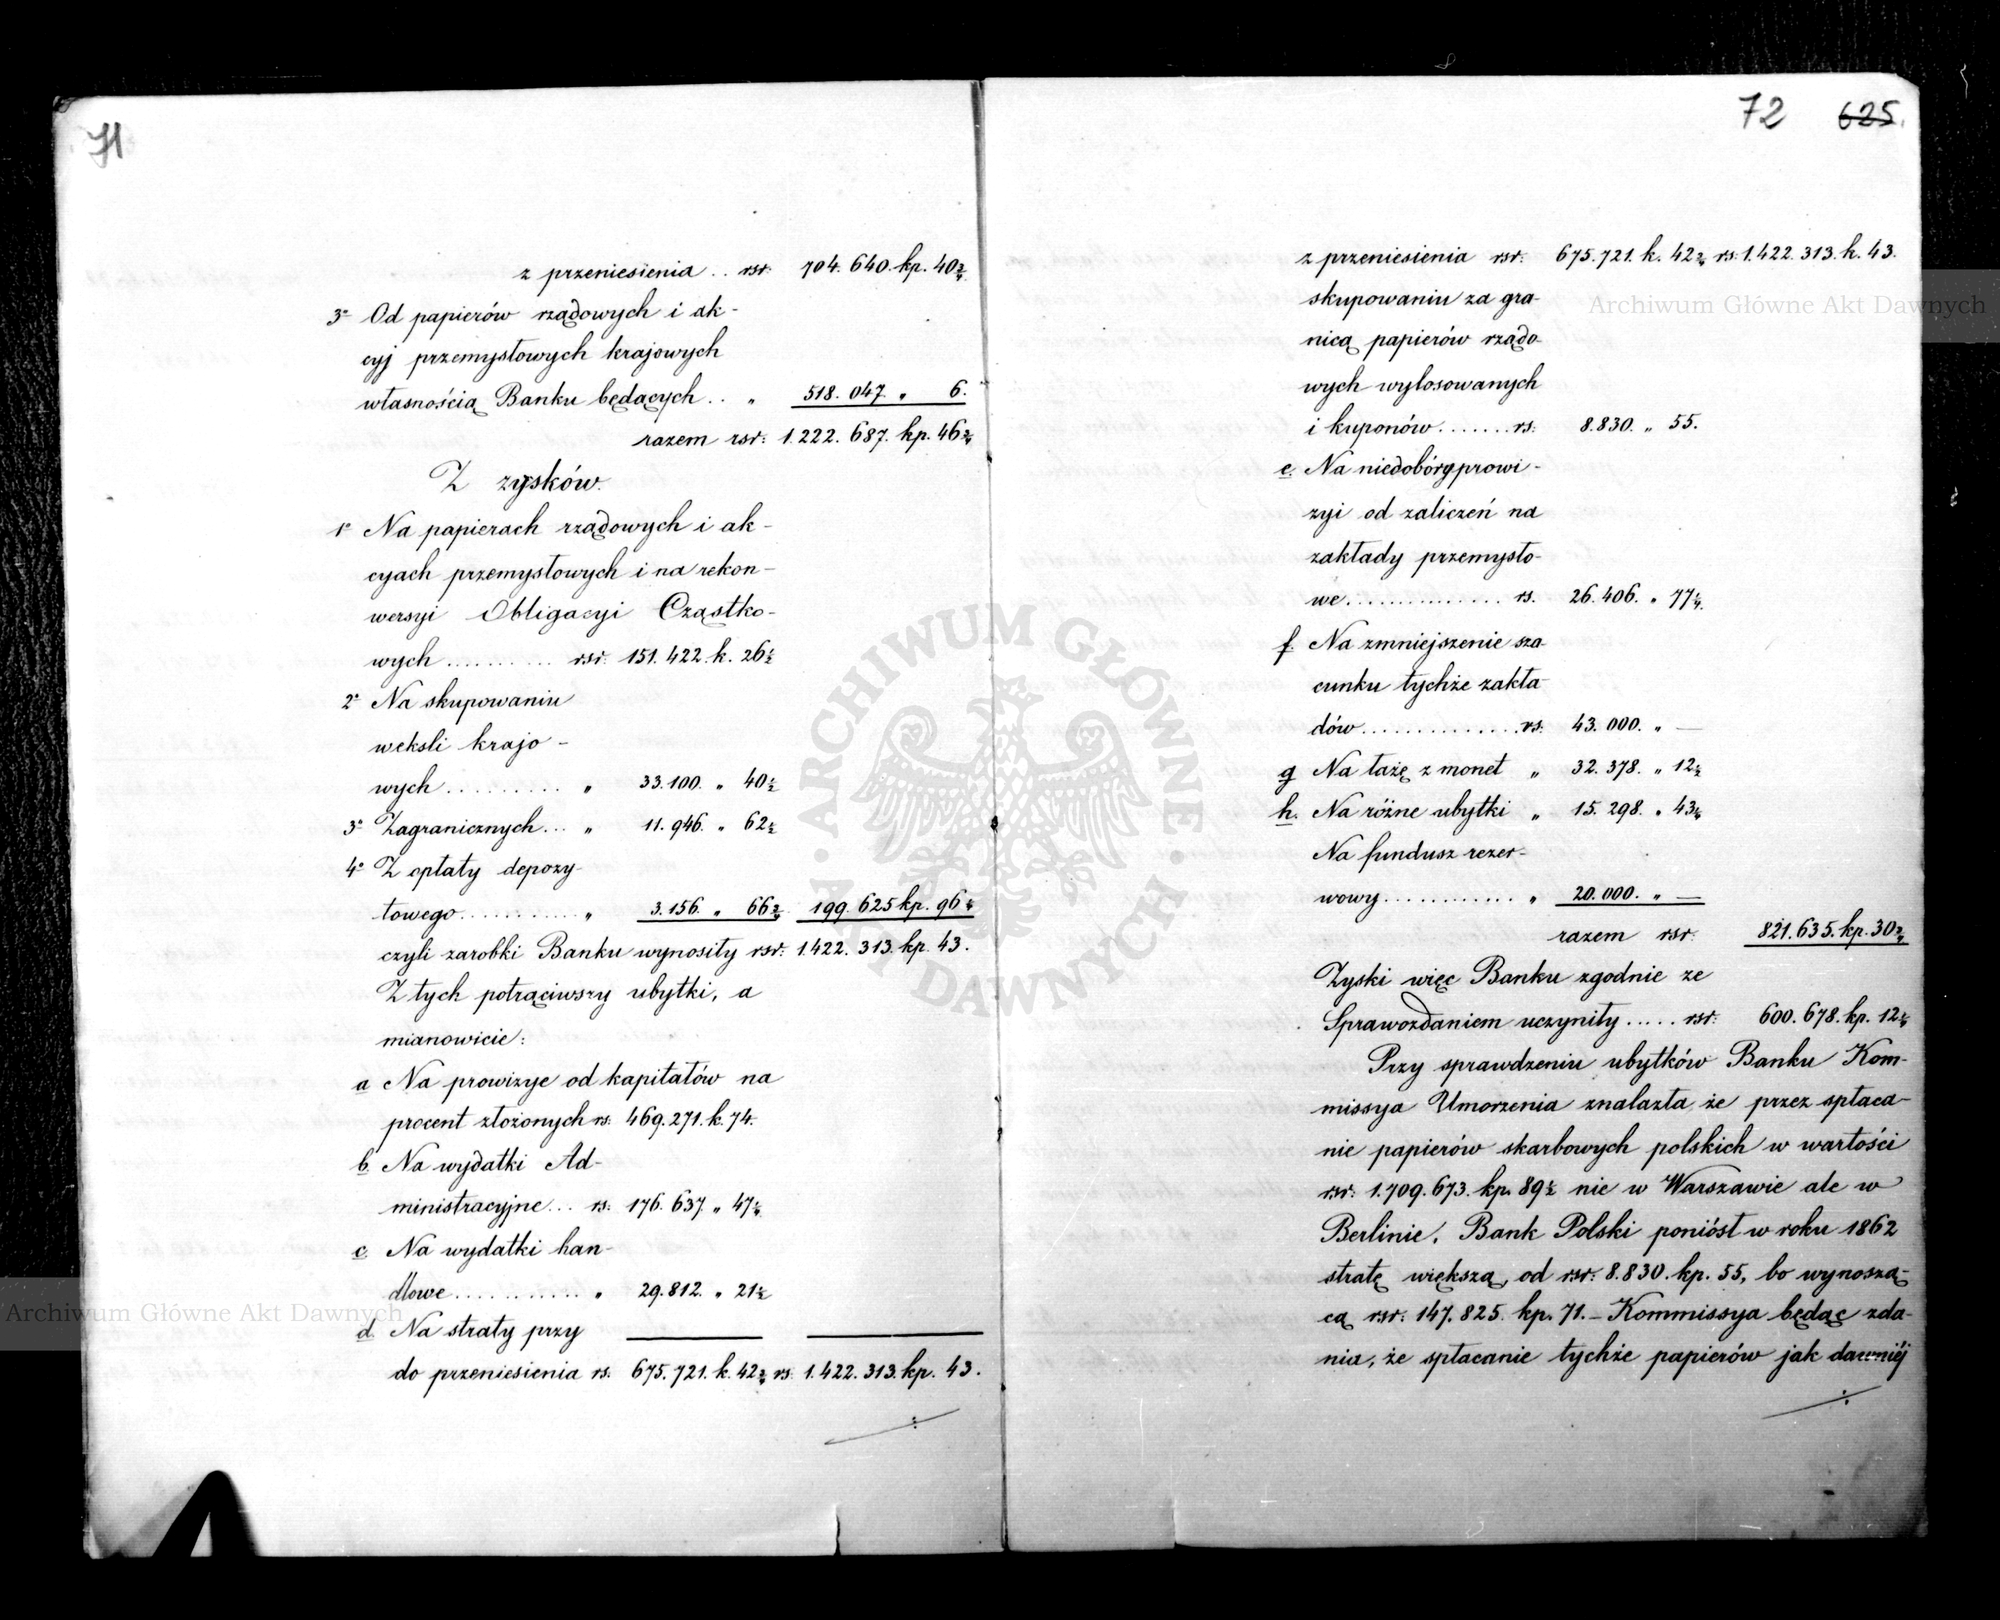 71
z przeniesienia .. rsr. 704. 640. kp. 40¾
3° Od papierów rządowych i ak-
cyj przemysłowych krajowych
własnością Banku będących .. „ 518. 047. „ 6.
razem rsr: 1.222. 687. kp. 46¾
Z zysków.
1° Na papierach rządowych i ak-
cyach przemysłowych i na rekon-
wersyi Obligacyi Cząstko-
wych .......... rsr: 151. 422. k. 26½
2° Na skupowaniu
weksli krajo-
wych .......... „ 33.100. „ 40½
3° Zagranicznych... „ 11. 946. „ 62½
4° Z opłaty depozy-
towego........... „ 3.156. „ 66¾ 199. 625 kp. 96¼
czyli zarobki Banku wynosiły rsr: 1.422. 313. kp. 43.
Z tych potrąciwszy ubytki, a
mianowicie:
a Na prowizye od kapitałów na
procent złożonych rs: 469. 271. k. 74.
b. Na wydatki Ad-
ministracyjne... rs: 176. 637. „ 47¼
c. Na wydatki han-
dlowe........... „ 29.812. „ 21½
d. Na straty przy
do przeniesienia rs. 675. 721. k. 42¾ rs: 1.422. 313. kp. 43.
72 625.
z przeniesienia rsr: 675.721. k. 42¾ rs: 1.422. 313. k. 43.
skupowaniu za gra-
nicą papierów rządo-
wych wylosowanych
i kuponów....... rs: 8.830. „ 55.
e. Na niedobóry prowi-
zyi od zaliczeń na
zakłady przemysło-
we.............. rs. 26. 406. „ 77¼.
f. Na zmniejszenie sza-
cunku tychże zakła-
dów.............. rs: 43. 000. „ —
g Na lażę z monet „ 32. 378. „ 12½
h. Na różne ubytki „ 15. 298. „ 43¼
Na fundusz rezer-
wowy............ „ 20. 000. „ —
razem rsr: 821. 635. kp. 30¾
Zyski więc Banku zgodnie ze
Sprawozdaniem uczyniły ..... rsr: 600. 678. kp. 12¼
Przy sprawdzeniu ubytków Banku Kom-
missya Umorzenia znalazła, że przez spłaca-
nie papierów skarbowych polskich w wartości
rsr: 1.709. 673. kp. 89½ nie w Warszawie ale w
Berlinie, Bank Polski poniósł w roku 1862
stratę większą, od rsr: 8.830. kp. 55, bo wynoszą-
cą rsr: 147. 825. kp. 71. – Kommissya będąc zda-
nia, że spłacanie tychże papierów jak dawniéj
Archiwum Główne Akt Dawnych
Archiwum Główne Akt Dawnych
ARCHIWUM GŁÓWNE · AKT DAWNYCH ·